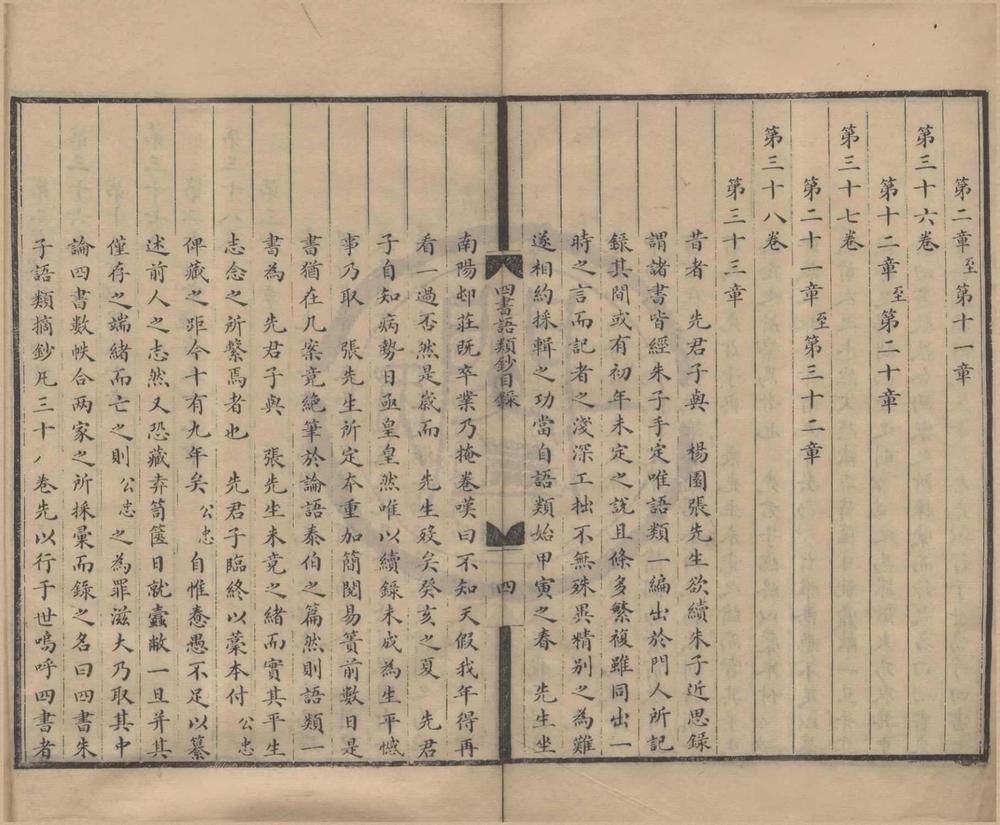 第二章至第十一章
第三十六卷
第十二章至第二十章
第三十七卷
第二十一章至第三十二章
第三十八卷
第三十三章
昔者　先君子與　楊園張先生欲續朱子近思錄
謂諸書皆經朱子手定唯語類一編出於門人所記
錄其間或有初年未定之說且條多繁複雖同出一
時之言而記者之淺深工拙不無殊異精別之為難
遂相約採輯之功當自語類始甲寅之春　先生坐
四書語類鈔目錄
四
南陽邨莊既卒業乃掩卷嘆曰不知天假我年得再
看一過否然是歲而　先生歿矣癸亥之夏　先君
子自知病勢日亟皇皇然唯以續錄未成為生平憾
事乃取　張先生所定本重加簡閱易簀前數日是
書猶在几案竟絕筆於論語泰伯之篇然則語類一
書為　先君子與　張先生未竟之緒而實其平生
志念之所繫焉者也　先君子臨終以藁本付　公忠
俾藏之距今十有九年矣　公忠　自惟惷愚不足以纂
述前人之志然又恐藏弆笥篋日就蠹敝一旦并其
僅存之端緒而亡之則　公忠　之為罪滋大乃取其中
論四書數帙合兩家之所採彙而錄之名曰四書朱
子語類摘鈔凡三十八卷先以行于世嗚呼四書者